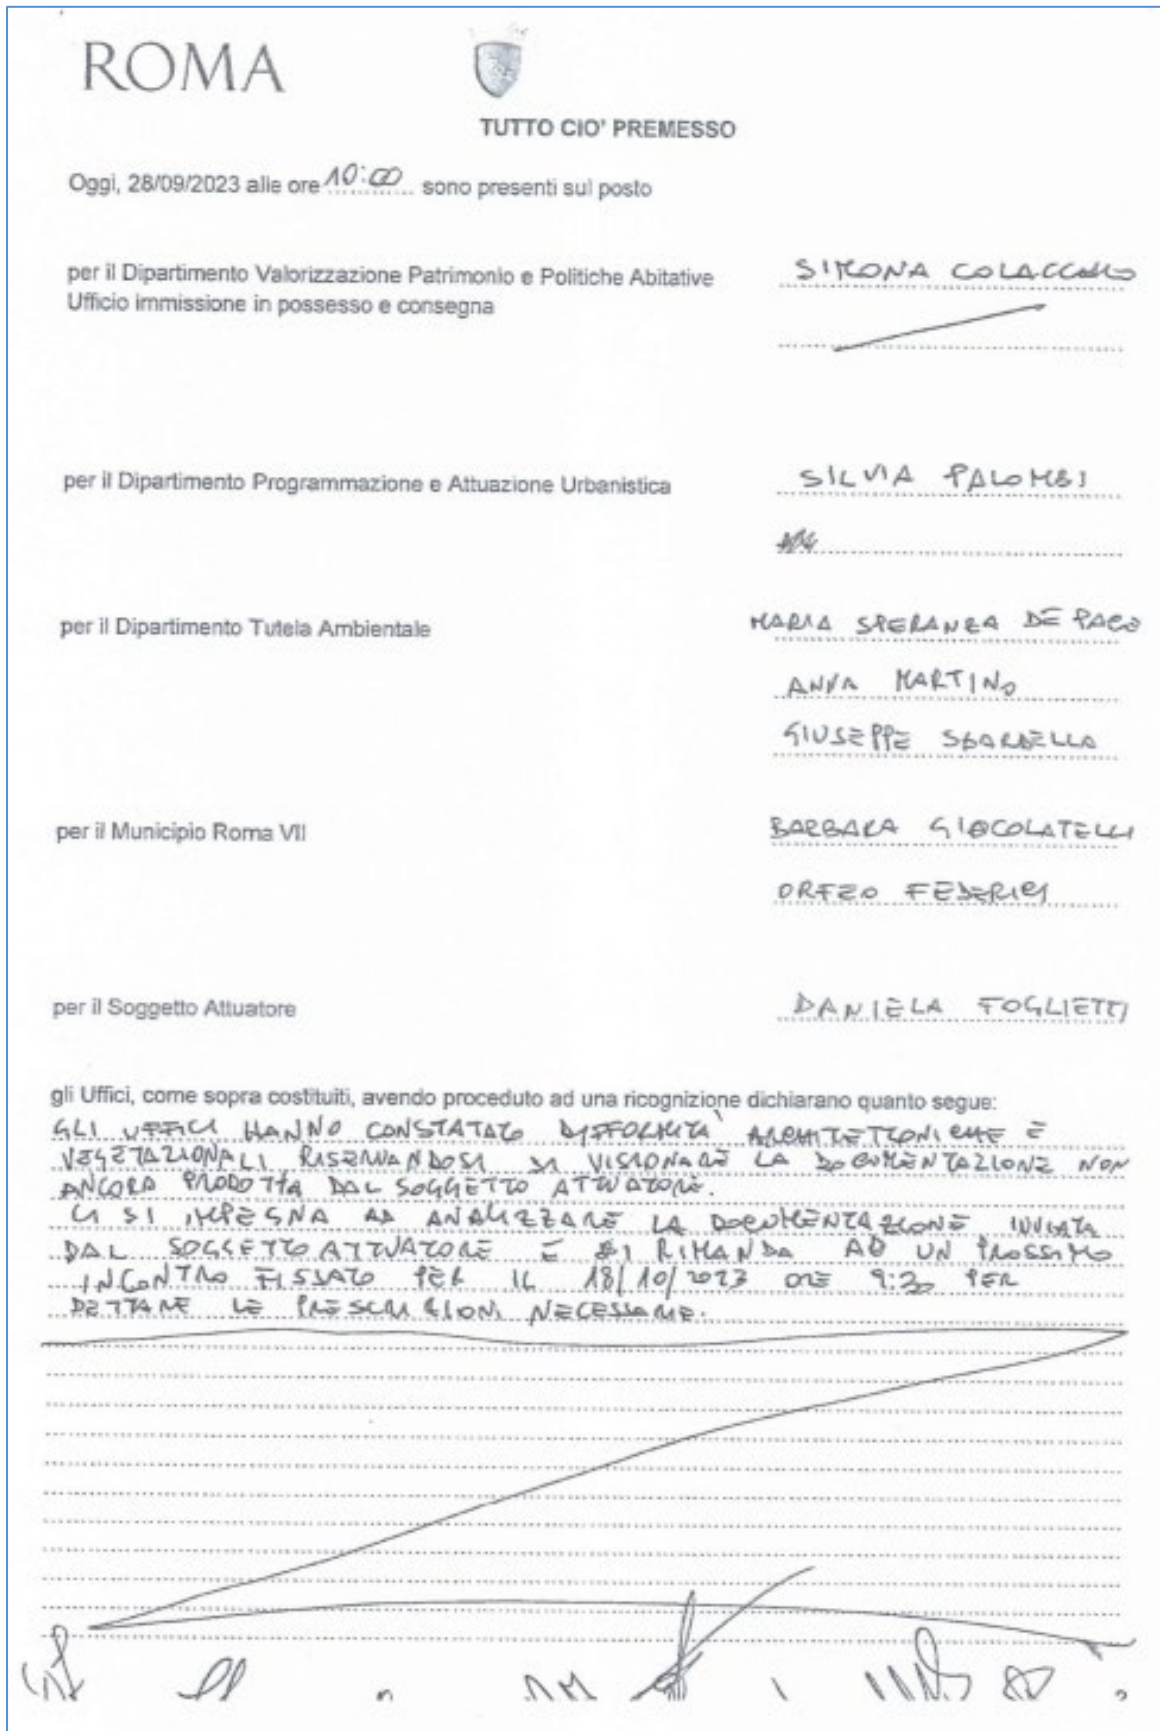 ROMA
TUTTO CIO' PREMESSO
Oggi, 28/09/2023 alle ore 10:00 sono presenti sul posto
per il Dipartimento Valorizzazione Patrimonio e Politiche Abitative SIMONA
Ufficio immissione in possesso e consegna
per il Dipartimento Programmazione e Attuazione Urbanistica SILVIA PALOMBI
per il Dipartimento Tutela Ambientale MARIA SPERANZA DE
ANNA MARTINO
GIUSEPPE SBARDELLA
per il Municipio Roma VII BARBARA
ORFEO FEDERICI
per il Soggetto Attuatore DANIELA FOGLIETTI
gli Uffici, come sopra costituiti, avendo proceduto ad una ricognizione dichiarano quanto segue:
GLI UFFICI HANNO CONSTATATO DIFFORMITA' ARCHITETTONICHE E
VEGETAZIONALI RISERVANDOSI DI VISIONARE LA DOCUMENTAZIONE NON
ANCORA PRODOTTA DAL SOGGETTO ATTUATORE.
CI SI IMPEGNA AD ANALIZZARE LA DOCUMENTAZIONE INVIATA
DAL SOGGETTO ATTUATORE E SI RIMANDA AD UN PROSSIMO
INCONTRO FISSATO PER IL 18/10/2023 ORE 9:30 PER
DETTARE LE PRESCRIZIONI NECESSARIE.